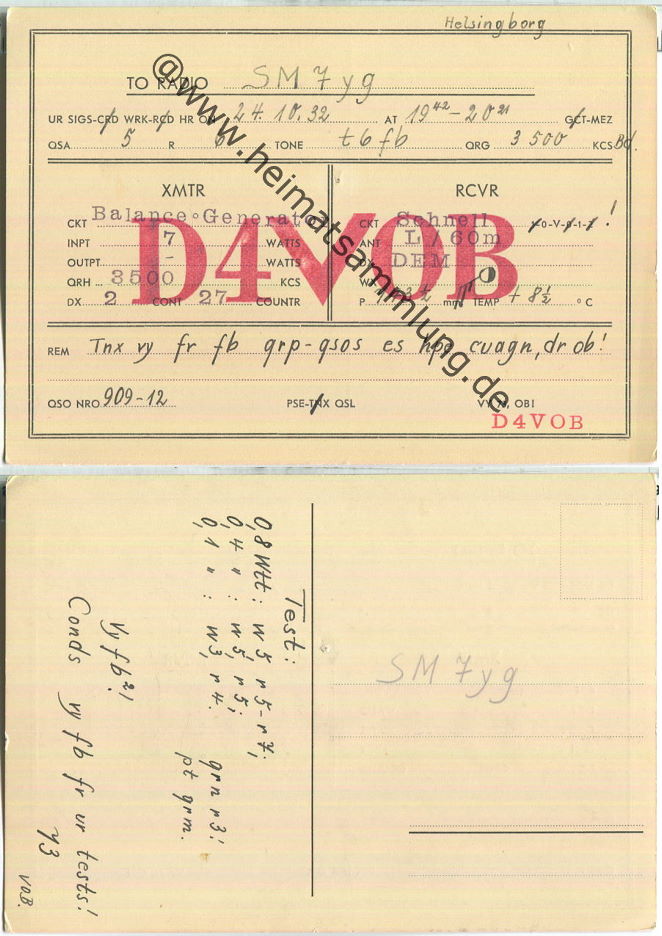 Helsingborg
TO RADIO SM7yg
UR SIGS-CRD WRK-RCD HR ON 24.10.32 AT 19 42 - 20 21 GCT-MEZ
QSA 5 R 6 TONE t6fb QRG 3500 KCS Bd.
XMTR
CKT Balance-Generator
INPT 7 WATTS
OUTPT - WATTS
QRH 3500 KCS
DX 2 CONT 27 COUNTR
RCVR
CKT Schnell 0-V-1 !
ANT L/60m
DEM
P mm TEMP + 8½ °C
D4VOB
REM Tnx vy fr fb qrp-qsos es hpe cuagn, dr ob!
QSO NRO 909-12 PSE-TNX QSL VY 73, OB!
D4VOB
@www.heimatsammlung.de
Test:
0,8 Wtt: w5 r5-r7;
0,4 " : w5, r5;
0,1 " : w3, r4.
grn r3!
pt grm.
Vy fb²!
Conds vy fb fr ur tests!
73
VOB.
SM7yg